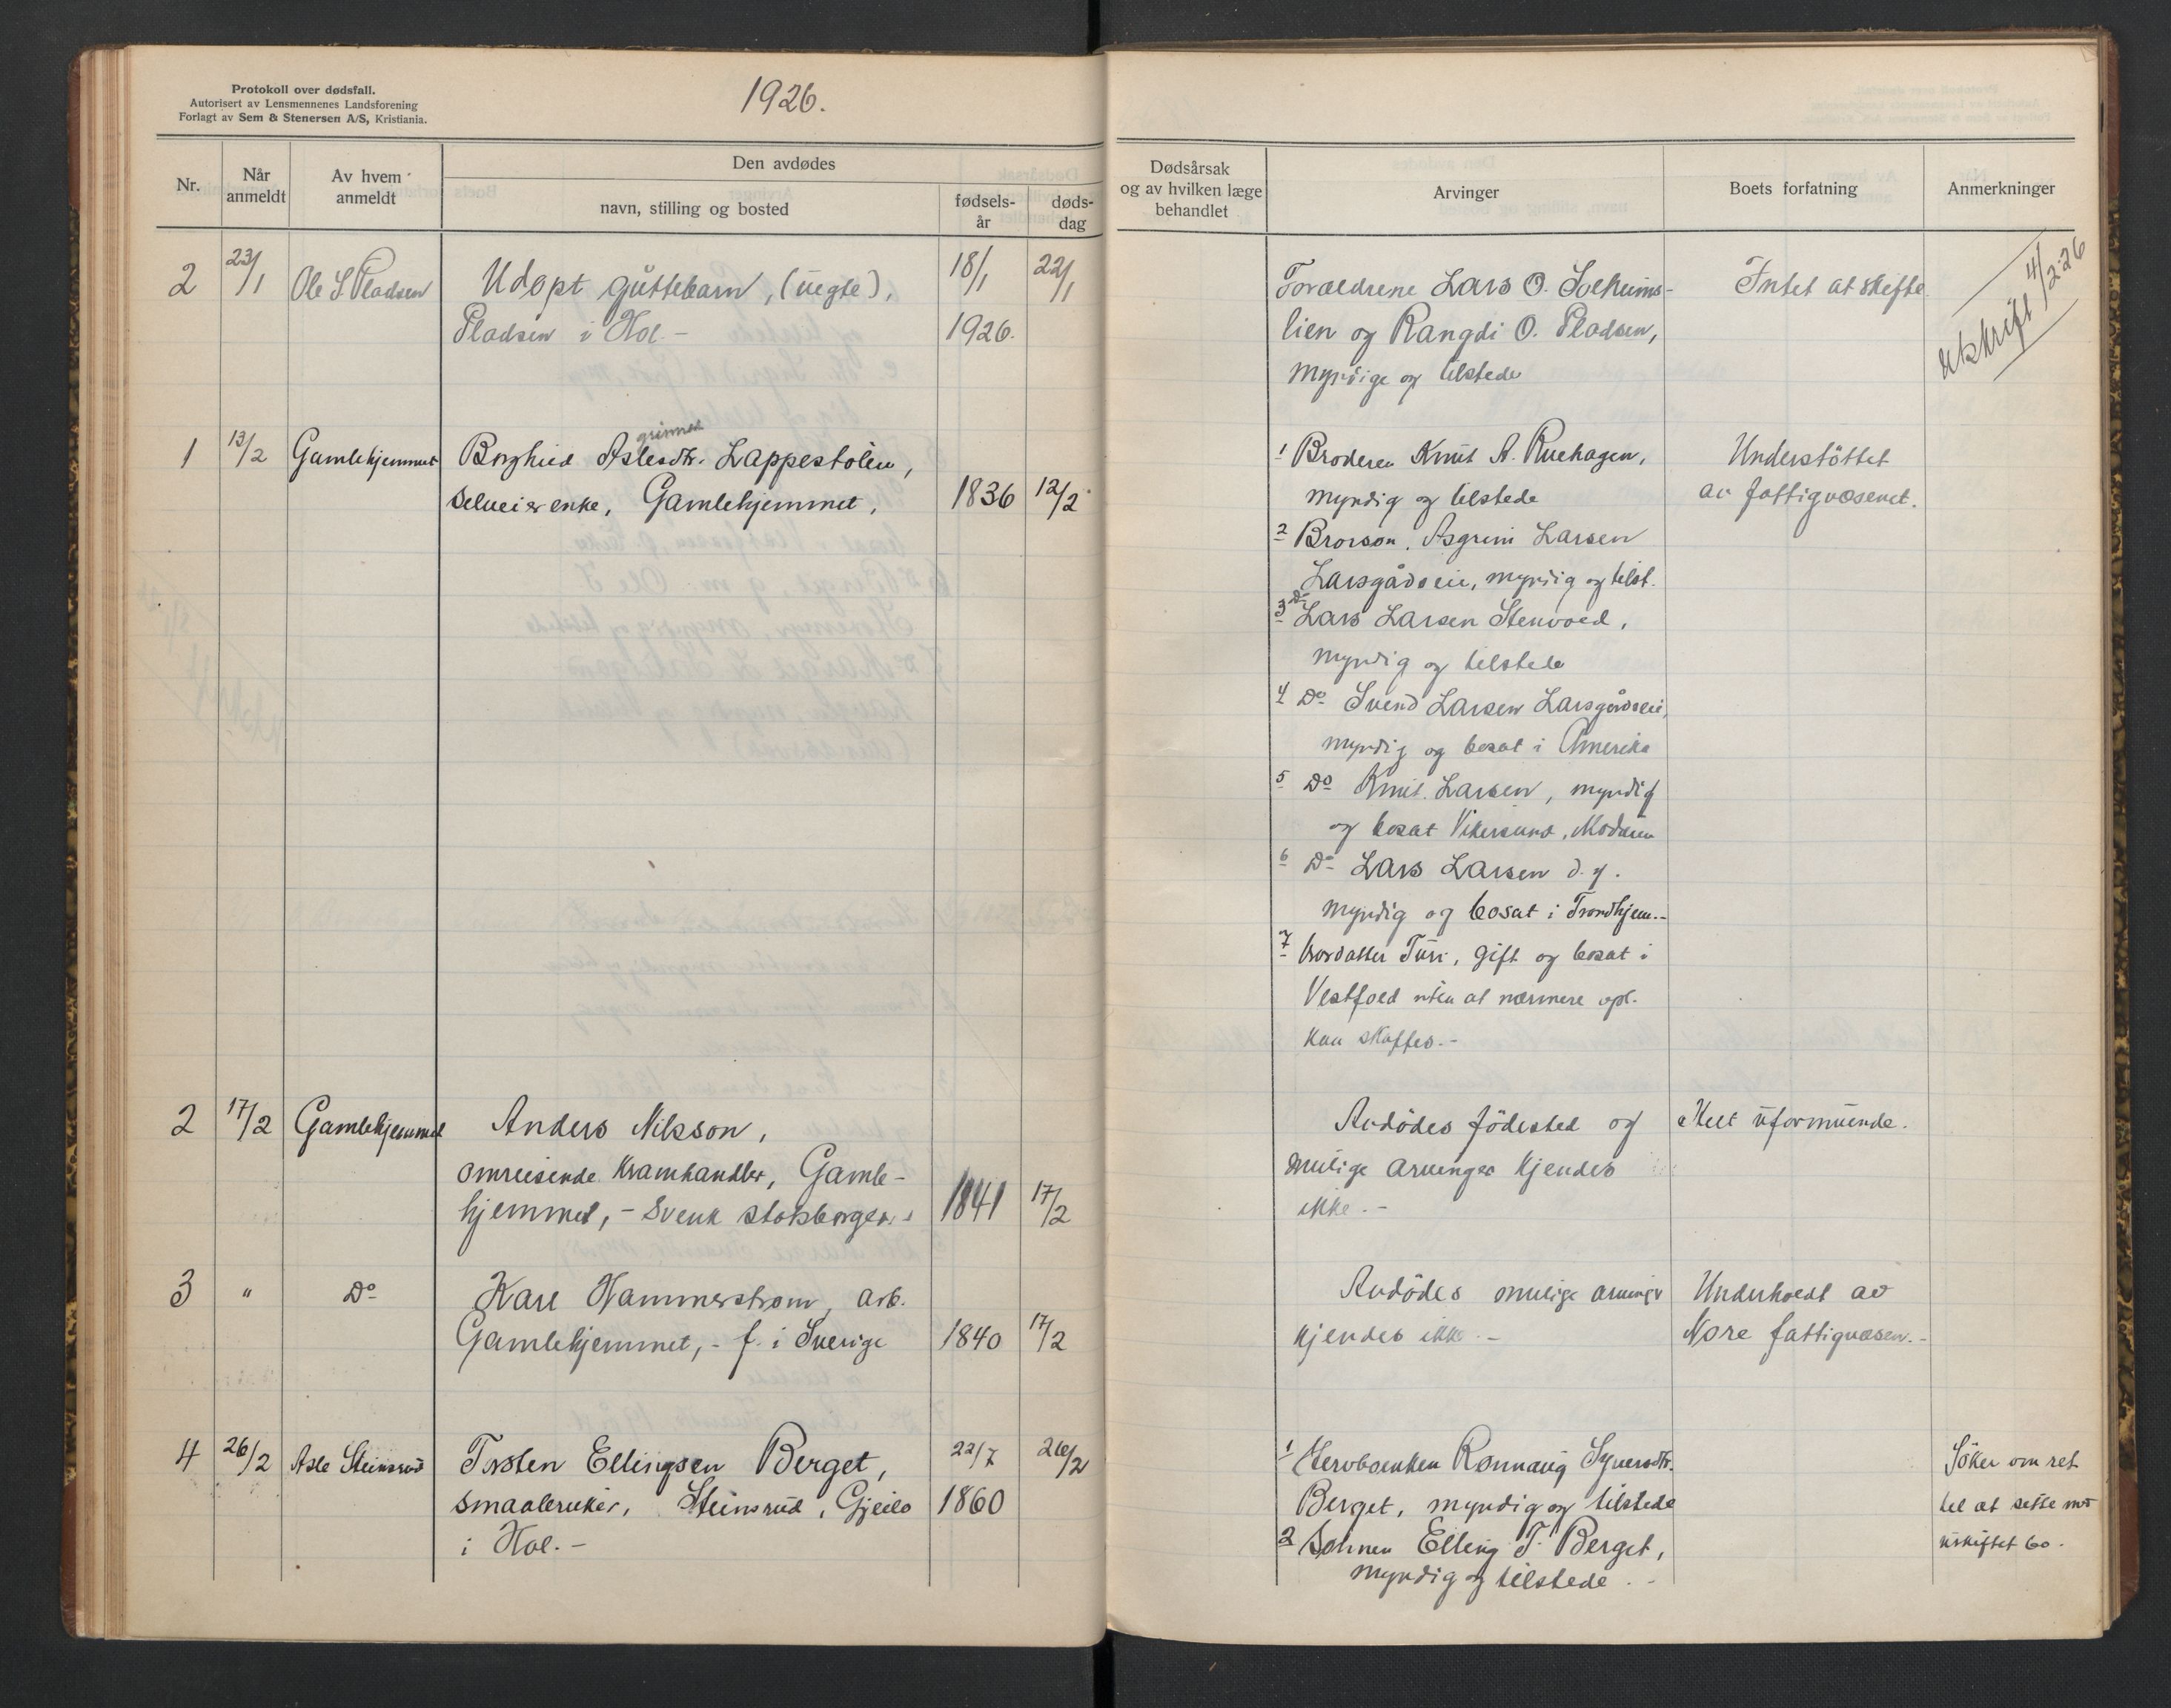 Protokoll over dødsfall.
Autorisert av Lensmennenes Landsforening
Forlagt av Sem & Stenersen A/S, Kristiania.
1926.
Nr.
Når anmeldt
Av hvem anmeldt
Den avdødes
navn, stilling og bosted
fødsels-
år
døds-
dag
Dødsårsak
og av hvilken læge
behandlet
Arvinger
Boets forfatning
Anmerkninger
2
23/1
Ole S. Pladsen
Udøpt guttebarn, (uegte),
Pladsen i Hol.-
18/1
1926.
22/1
Foræeldrene Lars O. Solheims-
lien og Rangdi O. Pladsen,
myndige og tilstede
Intet at skifte
utskrift 4/2 26
1
13/2
Gamlehjemmet
Borghild Aslesdtr. Lappestølen,
selveierenke, Gamlehjemmet,
1836
12/2
1 Broderen Knut A. Ruehagen,
myndig og tilstede
2 Brorson. Asgrim Larsen
Larsgårdseie, myndig og tilst.
3 Do Lars Larsen Stenvold,
myndig og tilstede
4 Do Svend Larsen Larsgårdseie,
myndig og bosat i Amerika
5 Do Knut Larsen, myndig
og bosat Vikersund, Modum
6 Do Lars Larsen d.y.
myndig og bosat i Trondhjem.-
7 brordatter Turi, gift og bosat i
Vestfold uten at nærmere opl.
kan skaffes.-
Understøttet
av fattigvæsenet.
2
17/2
Gamlehjemmet
Anders Nilsson,
omreisende kramhandler, Gamle-
hjemmet, - Svensk statsborger.-
1841
17/2
Avdødes fødested og
mulige arvinger kjendes
ikke.-
Helt uformuende.
3
"
Do
Karl Hammerstrøm, arb.
Gamlehjemmet, - f. i Sverige
1840
17/2
Avdødes mulige arvinger
kjendes ikke.-
Underholdt av
Nore fattigvæsen.-
4
26/2
Asle Steinsrud
Torsten Ellingsen Berget,
smaabruker, Steinsrud, Gjeilo
i Hol.-
22/7
1860
26/2
1 Hervboenken Rønnaug Syversdtr.
Berget, myndig og tilstede
2 Sønnen Elling T. Berget,
myndig og tilstede.-
Søker om ret
til at sitte m
uskiftet bo.